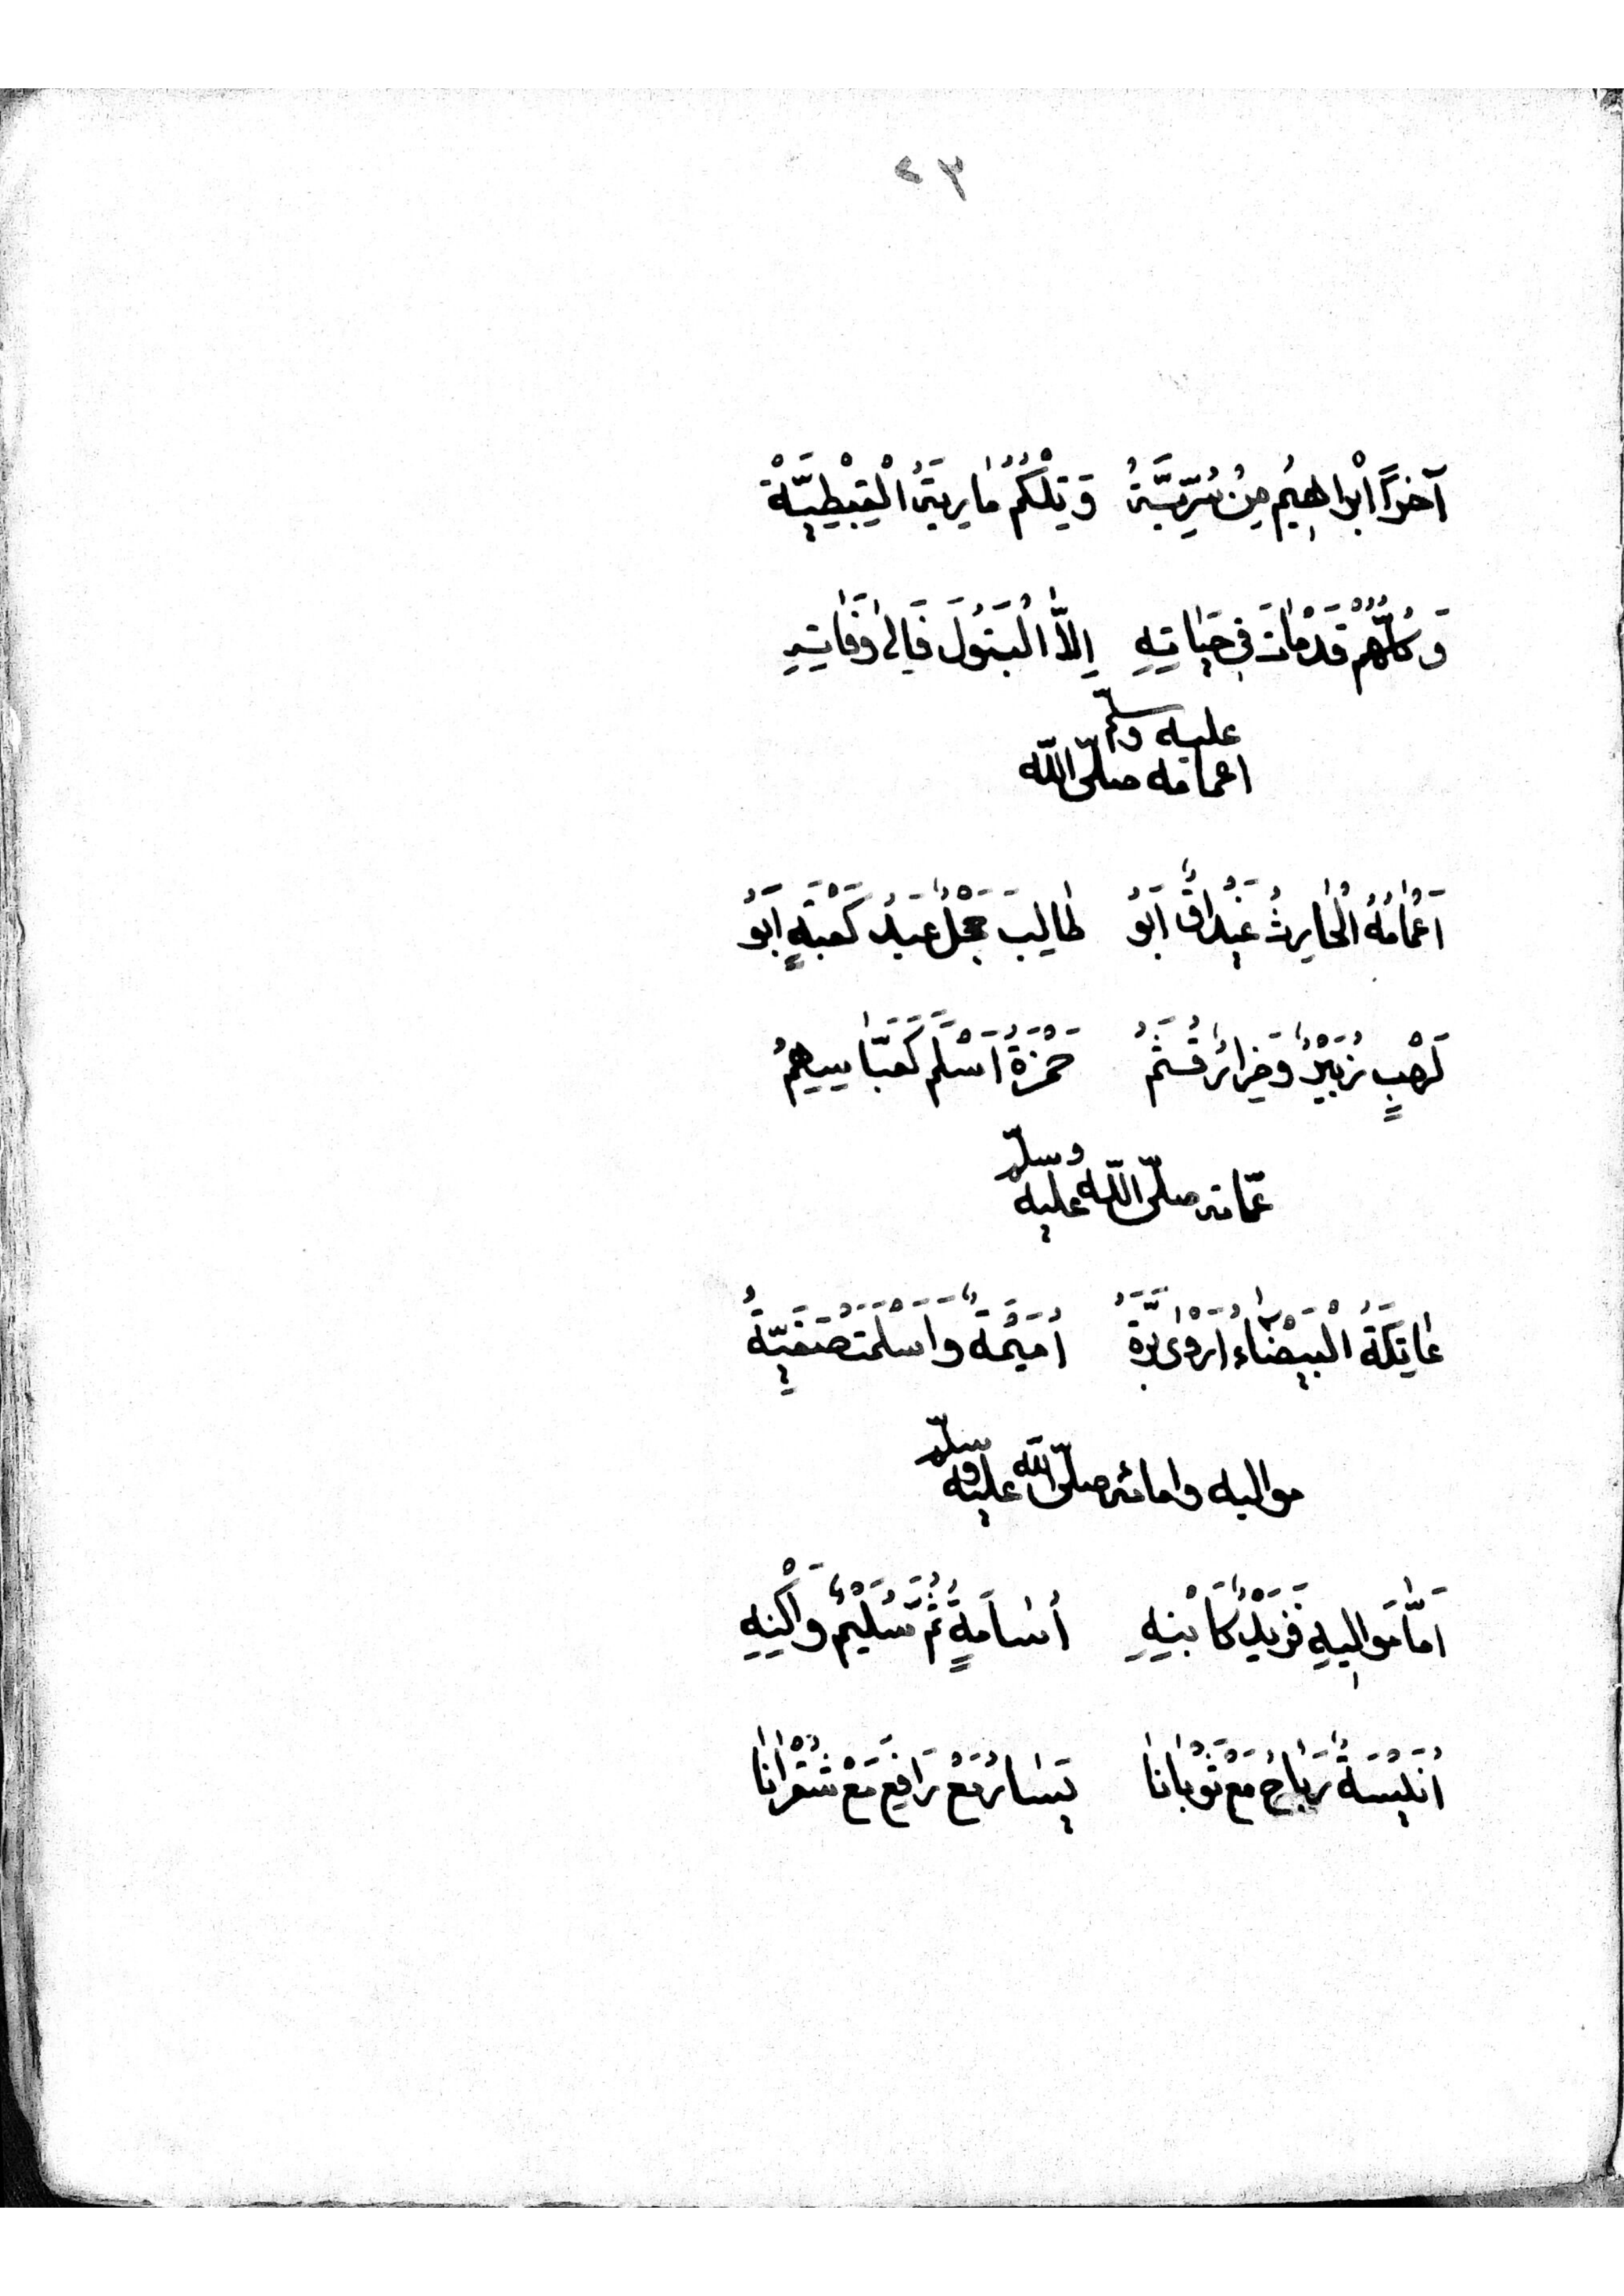 ٢٣
آخِرًا اِبْرَاهِيمُ مِنْ سُرِّيَّةُ وَتِلْكُمُ مَارِيَةُ الْقِبْطِيَّةْ
وَكُلُّهُمْ قَدْ مَاتَ فِي حَيَاتِهِ اِلَّا الْبَتُولَ فَالَى وَفَاتِهِ
اعمامه صلّى اللّه عليه وسلّم
اَعْمَامُهُ الْحَارِثُ غَيْدَاقٌ اَبُو طَالِبَ حَجْلٌ عَبْدُ كَعْبَةٍ اَبُو
لَهْبٍ زُبَيْرٌ وَضِرَارُ قُثَمُ حَمْزَةُ اَسْلَمَ كَعَبَّاسِهِمُ
عمّاته صلّى اللّه عليه وسلّم
عَاتِكَةُ الْبَيْضَاءُ اَرْوَى بَرَّةُ اُمَيْمَةٌ وَاَسْلَمَتْ صَفِيَّةُ
مواليه وامائه صلّى اللّه عليه وسلّم
اَمَّا مَوَالِيهِ فَزَيْدٌ كَابْنِهِ اُسَامَةٍ ثُمَّ سُلَيْمٌ وَاكْنِهِ
اُنَيْسَةٌ رَبَاحُ مَعْ ثَوْبَانَا يَسَارُ مَعْ رَافِعَ مَعْ شُقْرَانَا